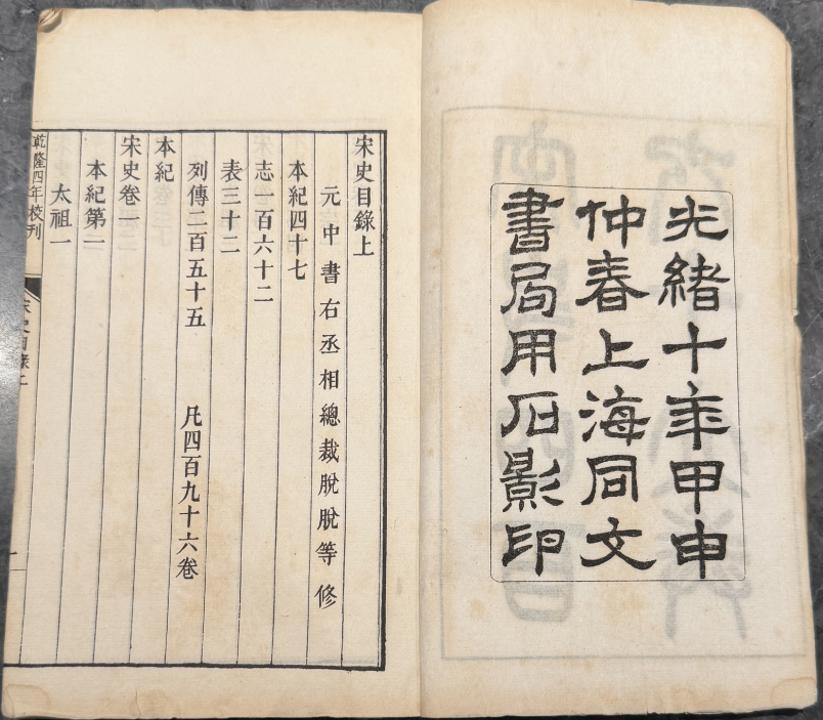 光緒十年甲申
仲春上海同文
書局用石影印
宋史目錄上
元中書右丞相總裁脫脫等修
本紀四十七
志一百六十二
表三十二
列傳二百五十五 凡四百九十六卷
本紀
宋史卷一
本紀第一
太祖一
乾隆四年校刊
宋史目錄上
一